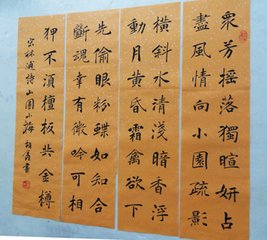 衆芳搖落獨暄妍占
盡風情向小園疏影
橫斜水清淺暗香浮
動月黃昏霜禽欲下
先偷眼粉蝶如知合
斷魂幸有微吟可相
狎不須檀板共金樽
宋林逋詩山園小梅 書